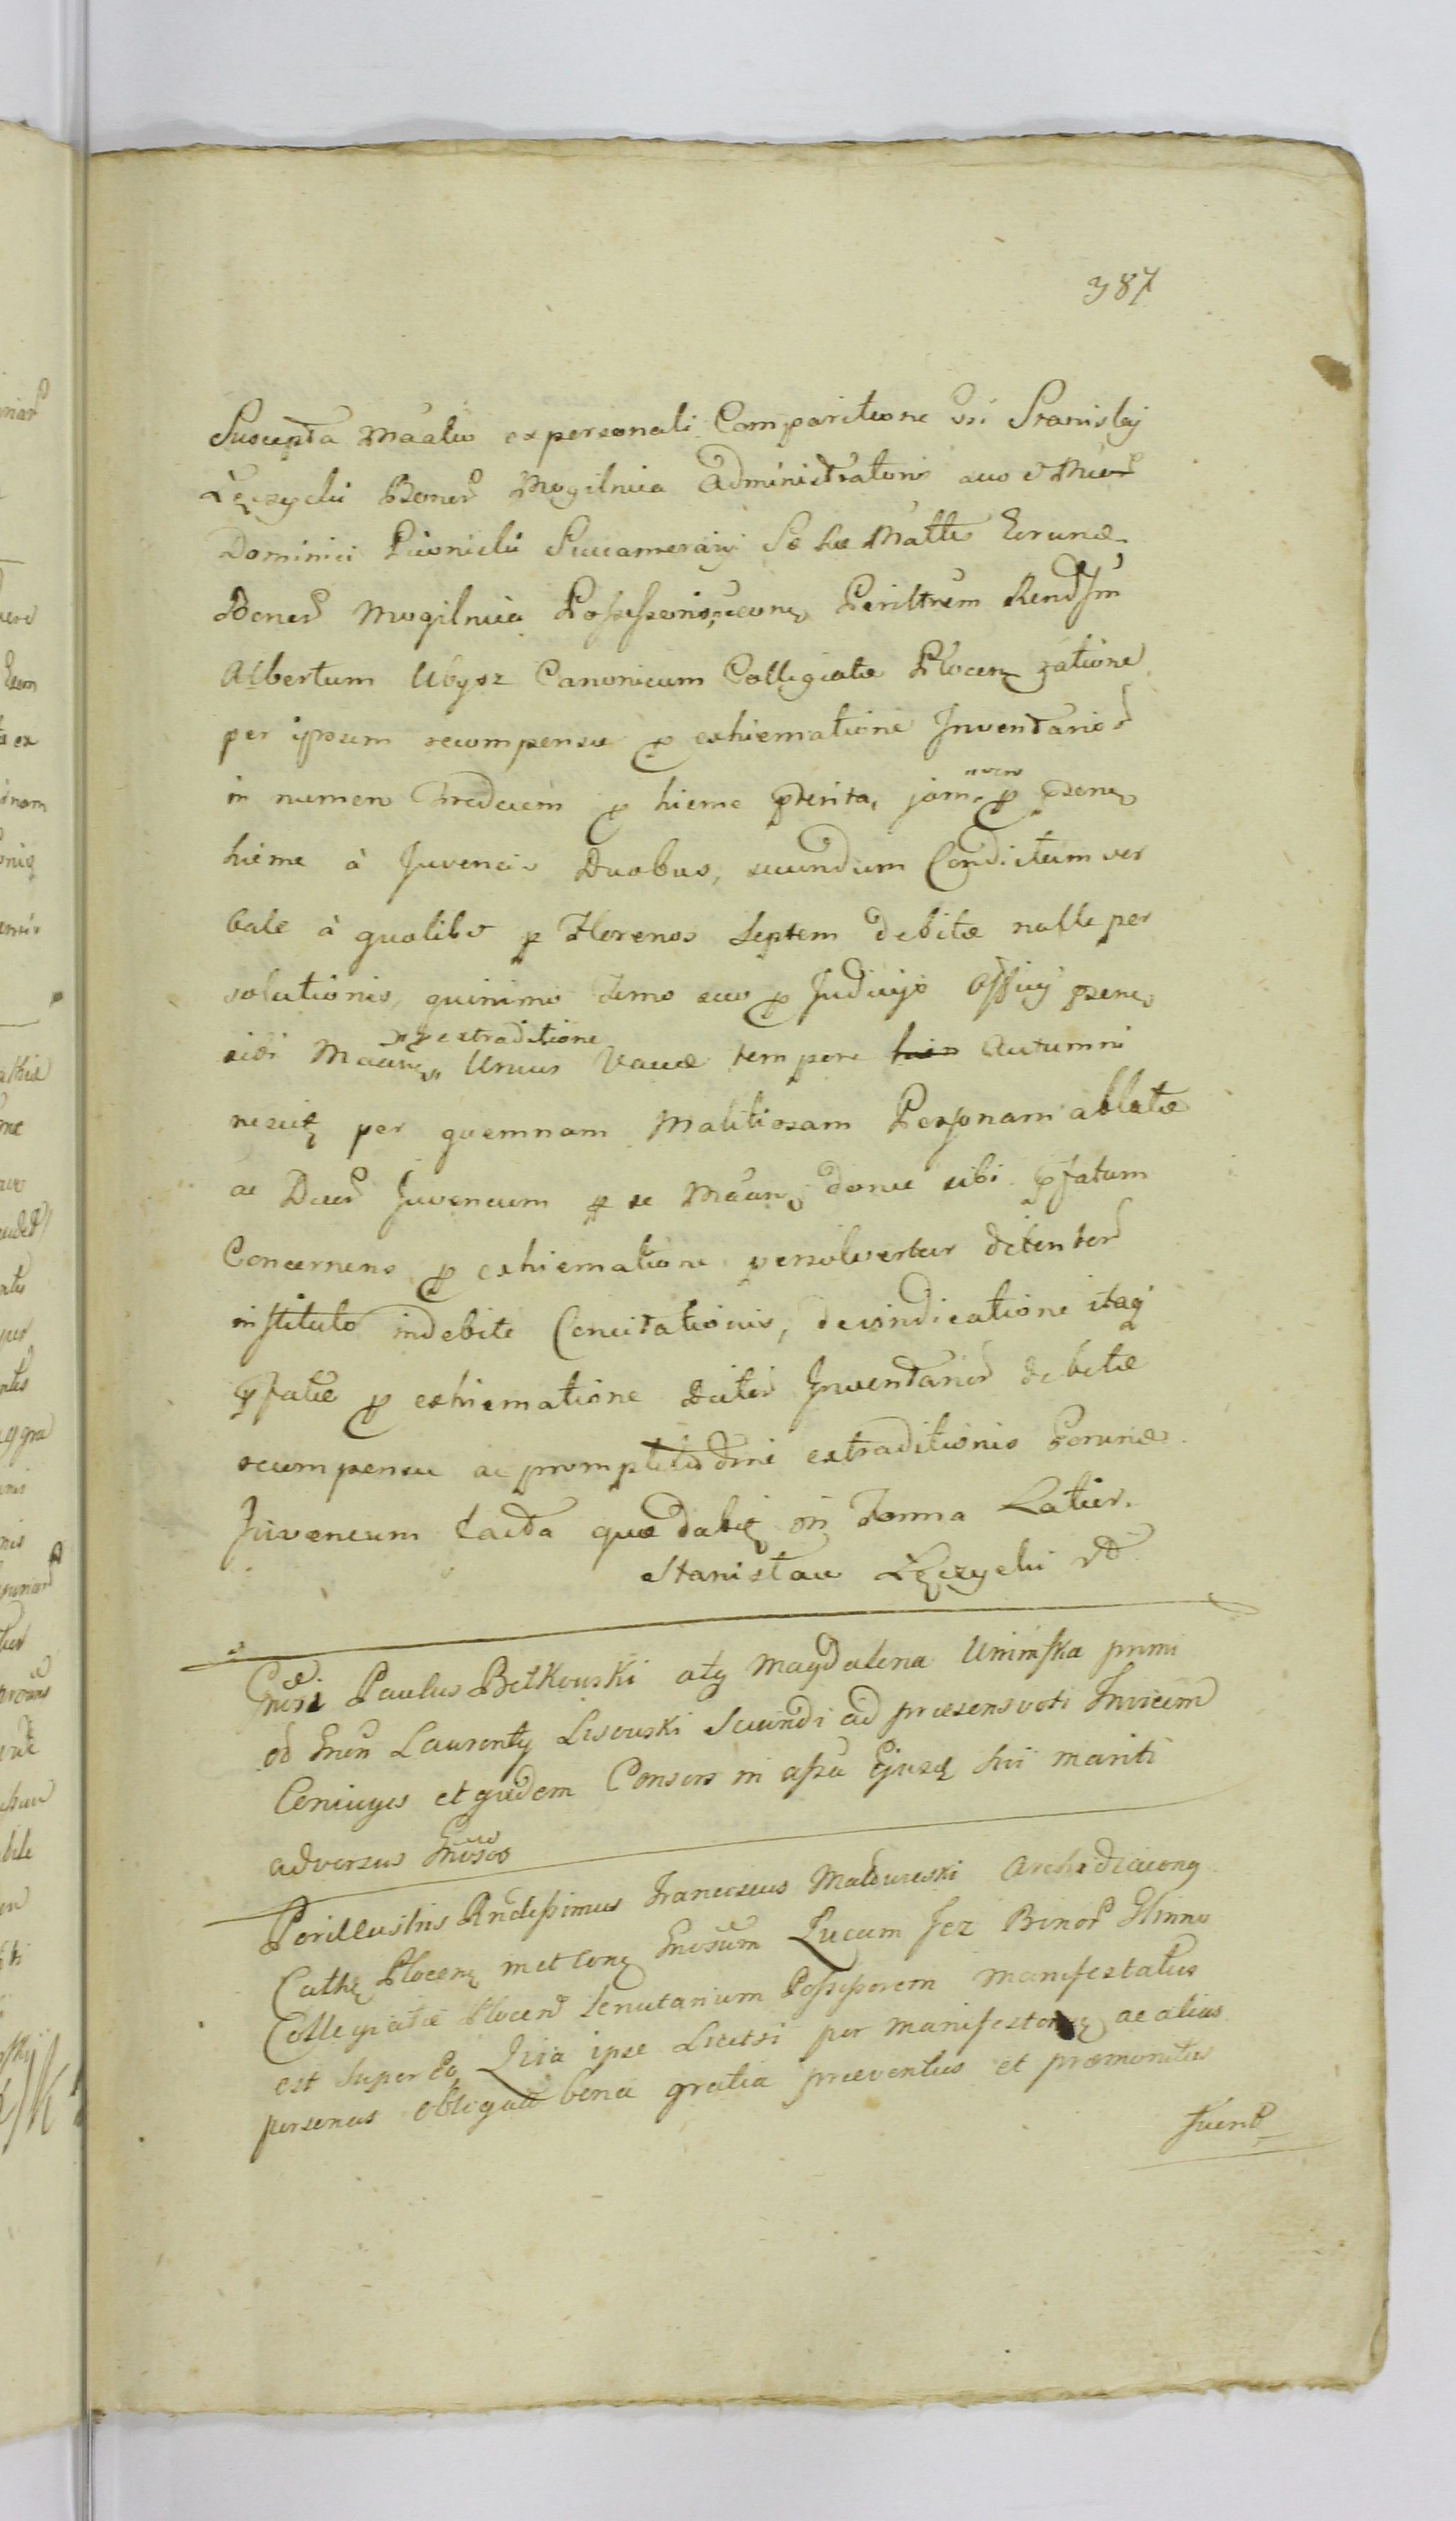 387
Suscepta Maalis ex personali Comparitione Vti Stanislaj
Łęczycki Bonor Mogilnica Administratoris suo et
Dominici Piwnicki Succamerarij Sæ Ræ Mattis Eorunde
Bonor Mogilnica Possessoris, Perilltrem Rendssm
Albertum Ubysz Canonicum Collegiatæ Plocen ratione
per ipsum recompensæ p exhiematione Inventarior
in numero Tredecim p hieme pterita, jam vero p psene
hieme à Juvencis Duobus, secundum Condictum ver
bale à quolibet p Florenos Septem debitæ nullæ per
solutionis, quinimo demo suo p Judicijo Officij psens
sibi extraditione Unius Vaccæ tempore Autumni
nescit per quemnam Malitiosam Personam ablatæ
ac Duor Juvencum p se donec sibi pfatum
Concernens p exhiematione persolvertur detentor
instituto indebite Concitationis, de vindicatione itaq
pfatæ p exhiematione dictor Inventarior debitæ
recompensæ ac promptitudine extraditionis Eorunde
Juvencum facta quæ dabit in Forma Latior.
Stanisław Łęczycki
Gnosi Paulus Betkowski atq Magdalena Unińska primi
od Gnen Laurenty Lisowski Secundi ad præsens voti Invicem
Coniuges et quidem Consors in assa Ejusd sui mariti
adversus Gnosos
Perillustris Rndissimus Franciscus Małowieski Archidiaconq
Cathæ Plocens Gnosum Lucam Jeż Bonor Glinno
Collegiatæ Plocens tenutarium Possessorem manifestatus
est Super Eo Quia ipse Licetsi per manifestantem ac alias
personas obligatas bona gratia præventus et præmonitus
fuerit